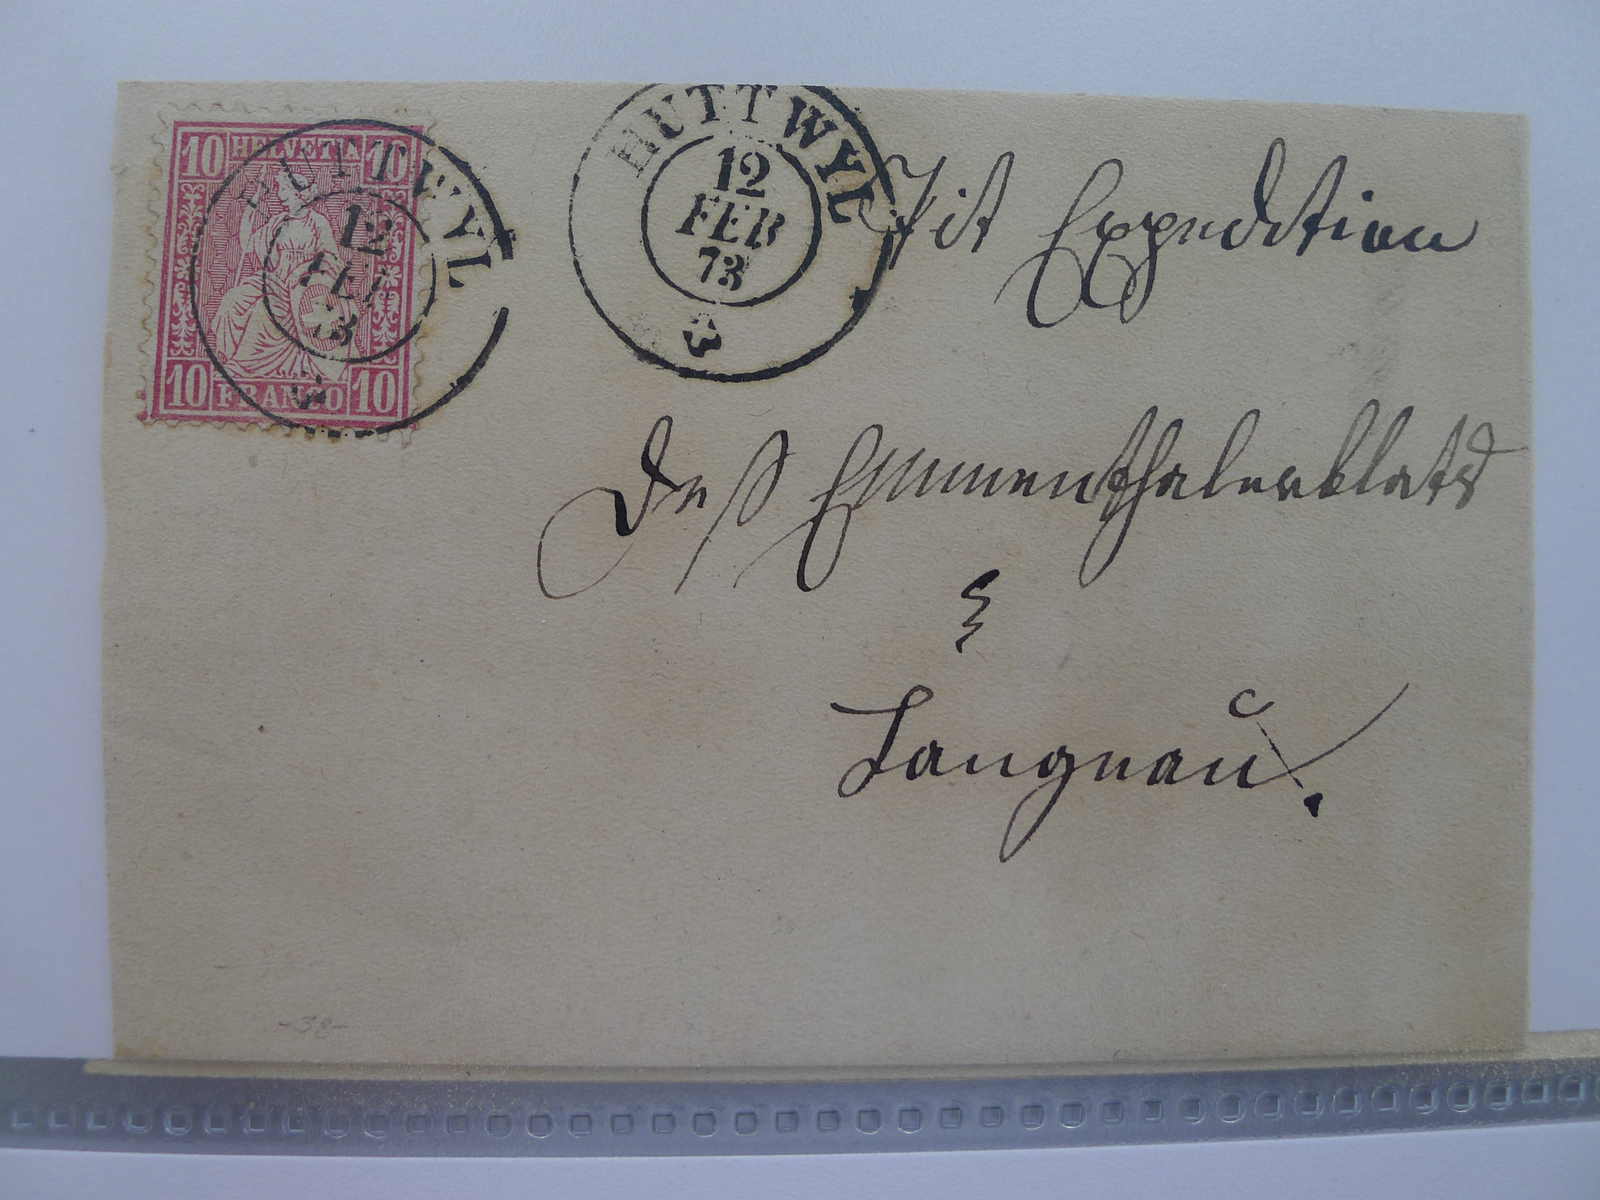 10 HELVETIA 10
10 FRANCO 10
HUTTWYL
12
FEB
73
HUTTWYL
12
FEB
73
Tit Expedition
deß Emmenthalerblatts
Langnau.
-38-